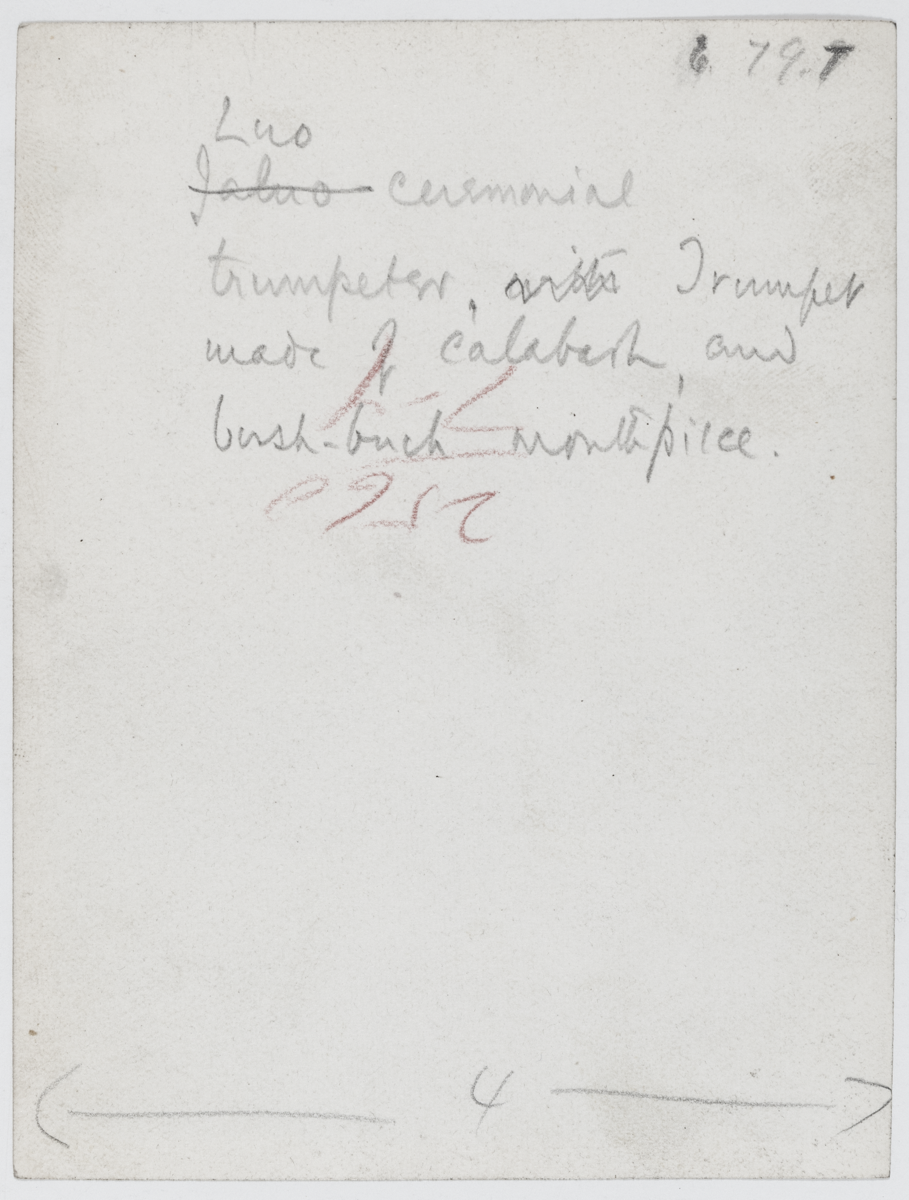 79.
Luo
Jaluo ceremonial
trumpeter, with Trumpet
made of calabash, and
bush-buck mouthpiece.
4